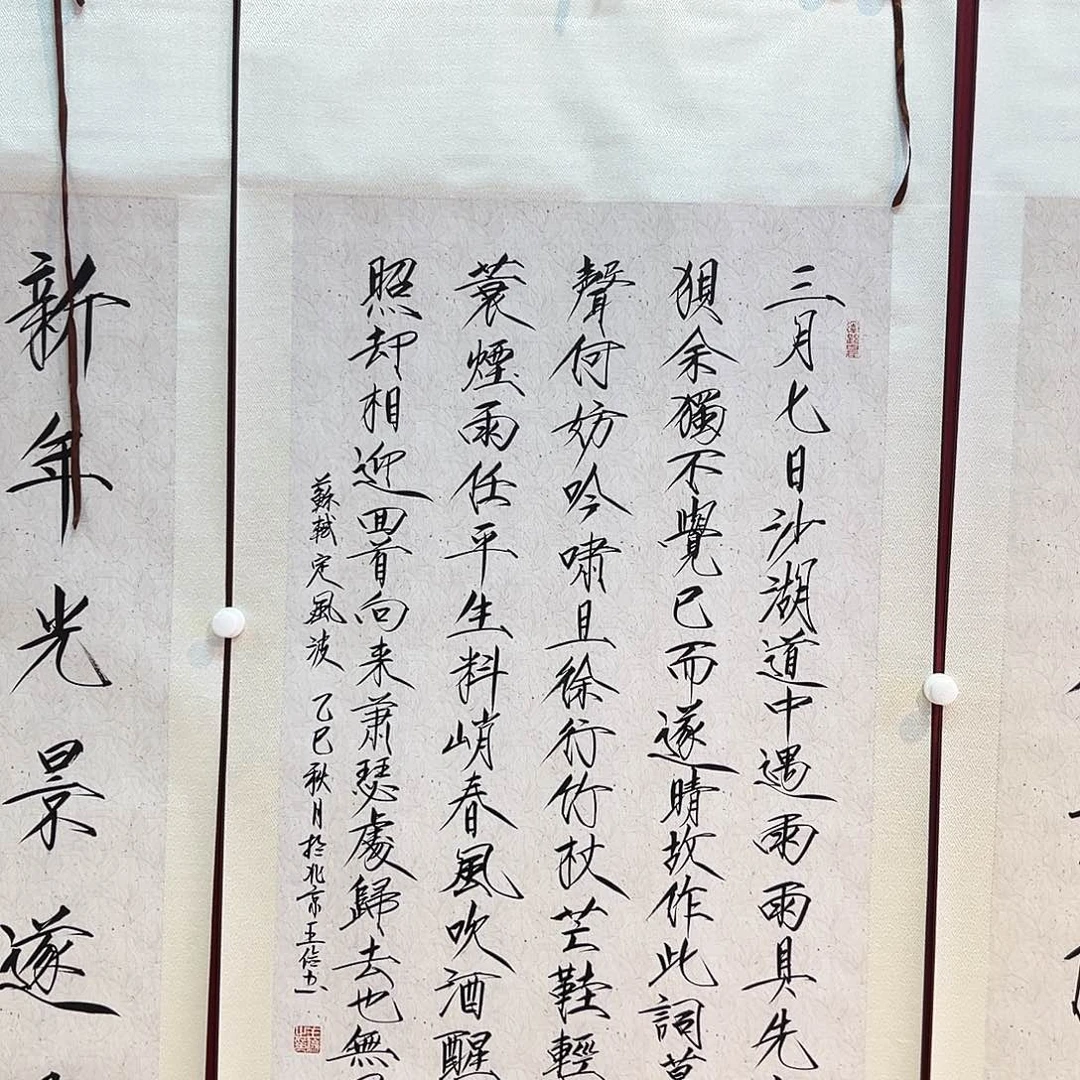 三月七日沙湖道中遇雨雨具先
狽余獨不覺已而遂晴故作此詞
聲何妨吟嘯且徐行竹杖芒鞋輕
蓑煙雨任平生料峭春風吹酒醒
照却相迎回首向来蕭瑟處歸去也無
蘇軾定風波 乙巳秋月於北京王信书
新年光景遂